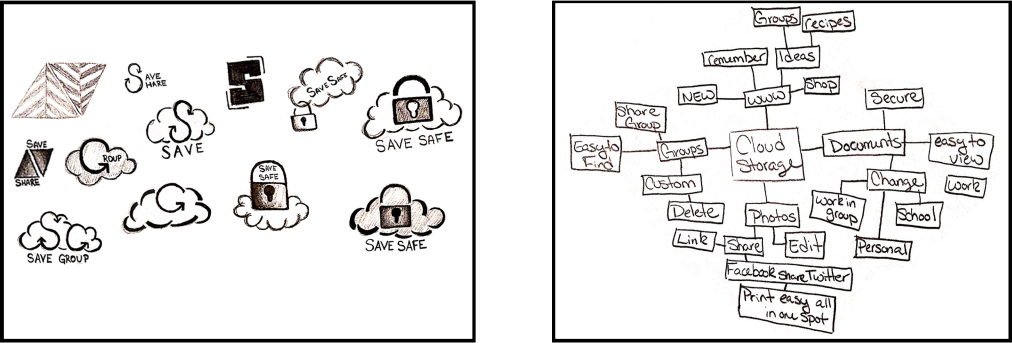 SAVE
SHARE
SAVE SAFE
SAVE
SAVE SAFE
SAVE
SHARE
GROUP
SAVE
SAFE
SG
SAVE GROUP
SAVE SAFE
Groups
recipes
remember
Ideas
NEW
WWW
Shop
Secure
Share
Group
Easy to
Find
Groups
Cloud
Storage
Documents
easy to
view
Custom
Change
Work
Delete
Photos
work in
group
School
Link
Share
Edit
Personal
Facebook Share Twitter
Print easy all
in one spot